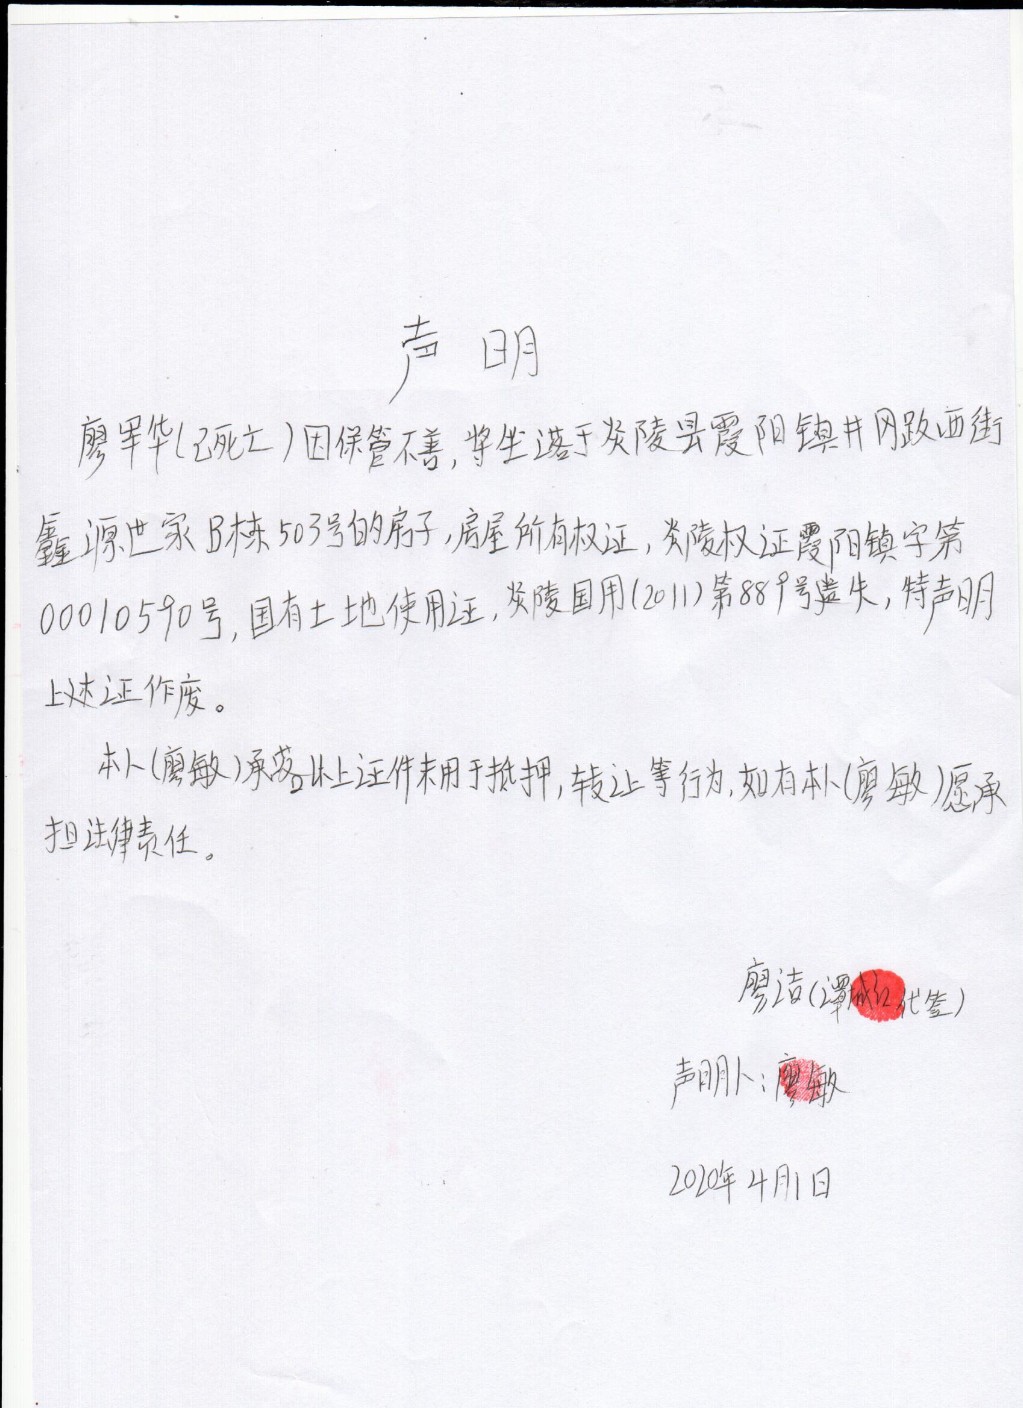 声明
廖军华(已死亡)因保管不善,将坐落于炎陵县霞阳镇井冈路西街
鑫源世家B栋503号的房子,房屋所有权证,炎陵权证霞阳镇字第
00010590号,国有土地使用证,炎陵国用(2011)第889号遗失,特声明
上述证作废。
本人(廖敏)承诺以上证件未用于抵押,转让等行为,如有本人(廖敏)愿承
担法律责任。
廖洁(谭成江代签)
声明人:廖敏
2020年4月1日